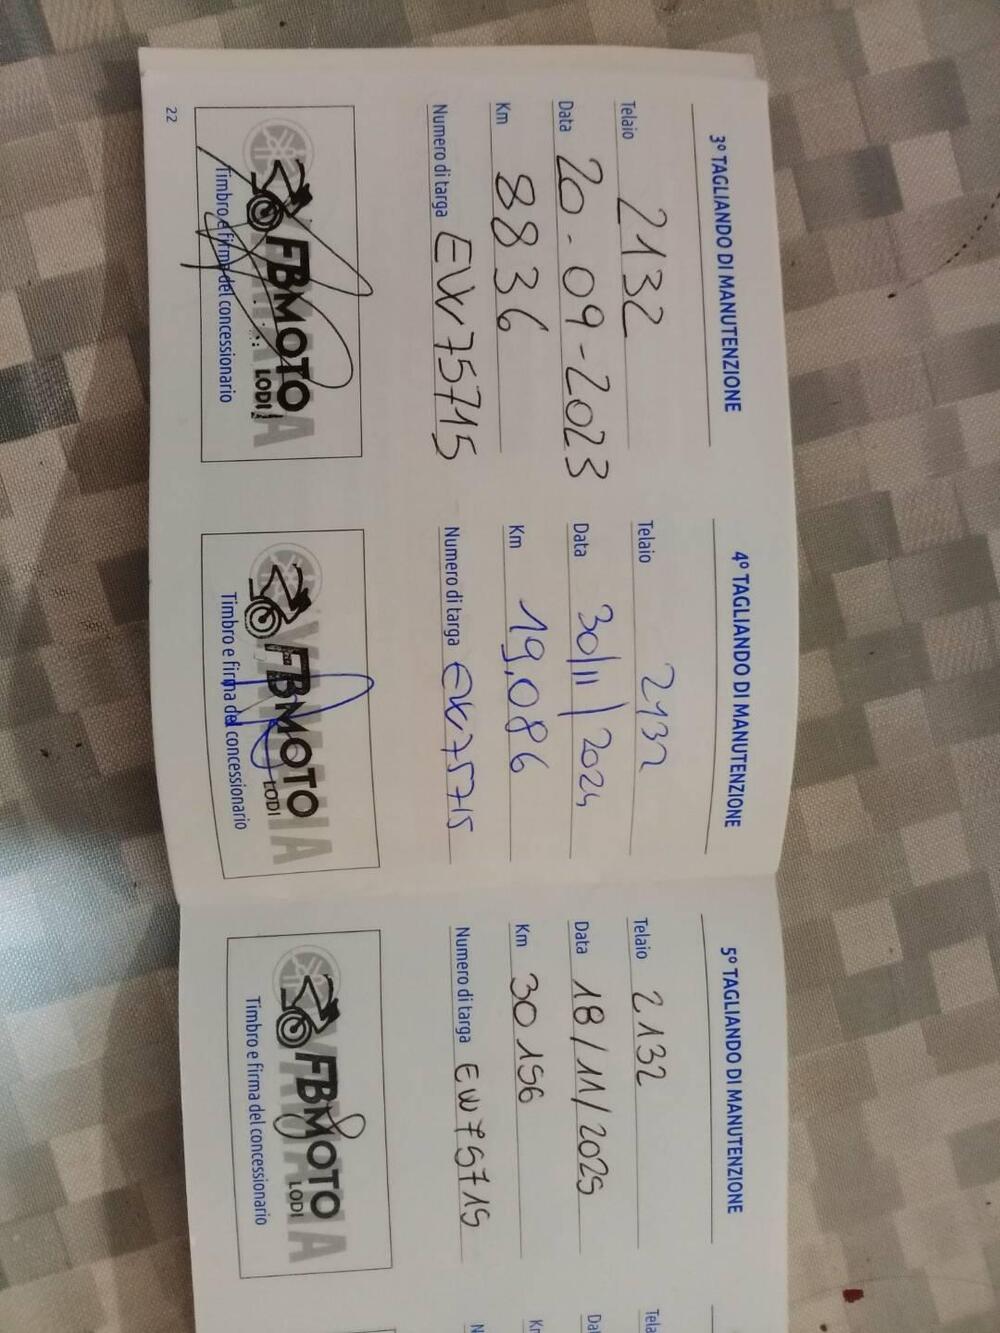 3º TAGLIANDO DI MANUTENZIONE
Telaio 2132
Data 20-09-2023
Km 8836
Numero di targa EW75715
YAMAHA
FBMOTO
LODI
Timbro e firma del concessionario
22
4º TAGLIANDO DI MANUTENZIONE
Telaio 2132
Data 30/11/2024
Km 19,086
Numero di targa EW75715
YAMAHA
FBMOTO
LODI
Timbro e firma del concessionario
5º TAGLIANDO DI MANUTENZIONE
Telaio 2132
Data 18/11/2025
Km 30156
Numero di targa EW75715
YAMAHA
FBMOTO
LODI
Timbro e firma del concessionario
Tela
Da
Km
N